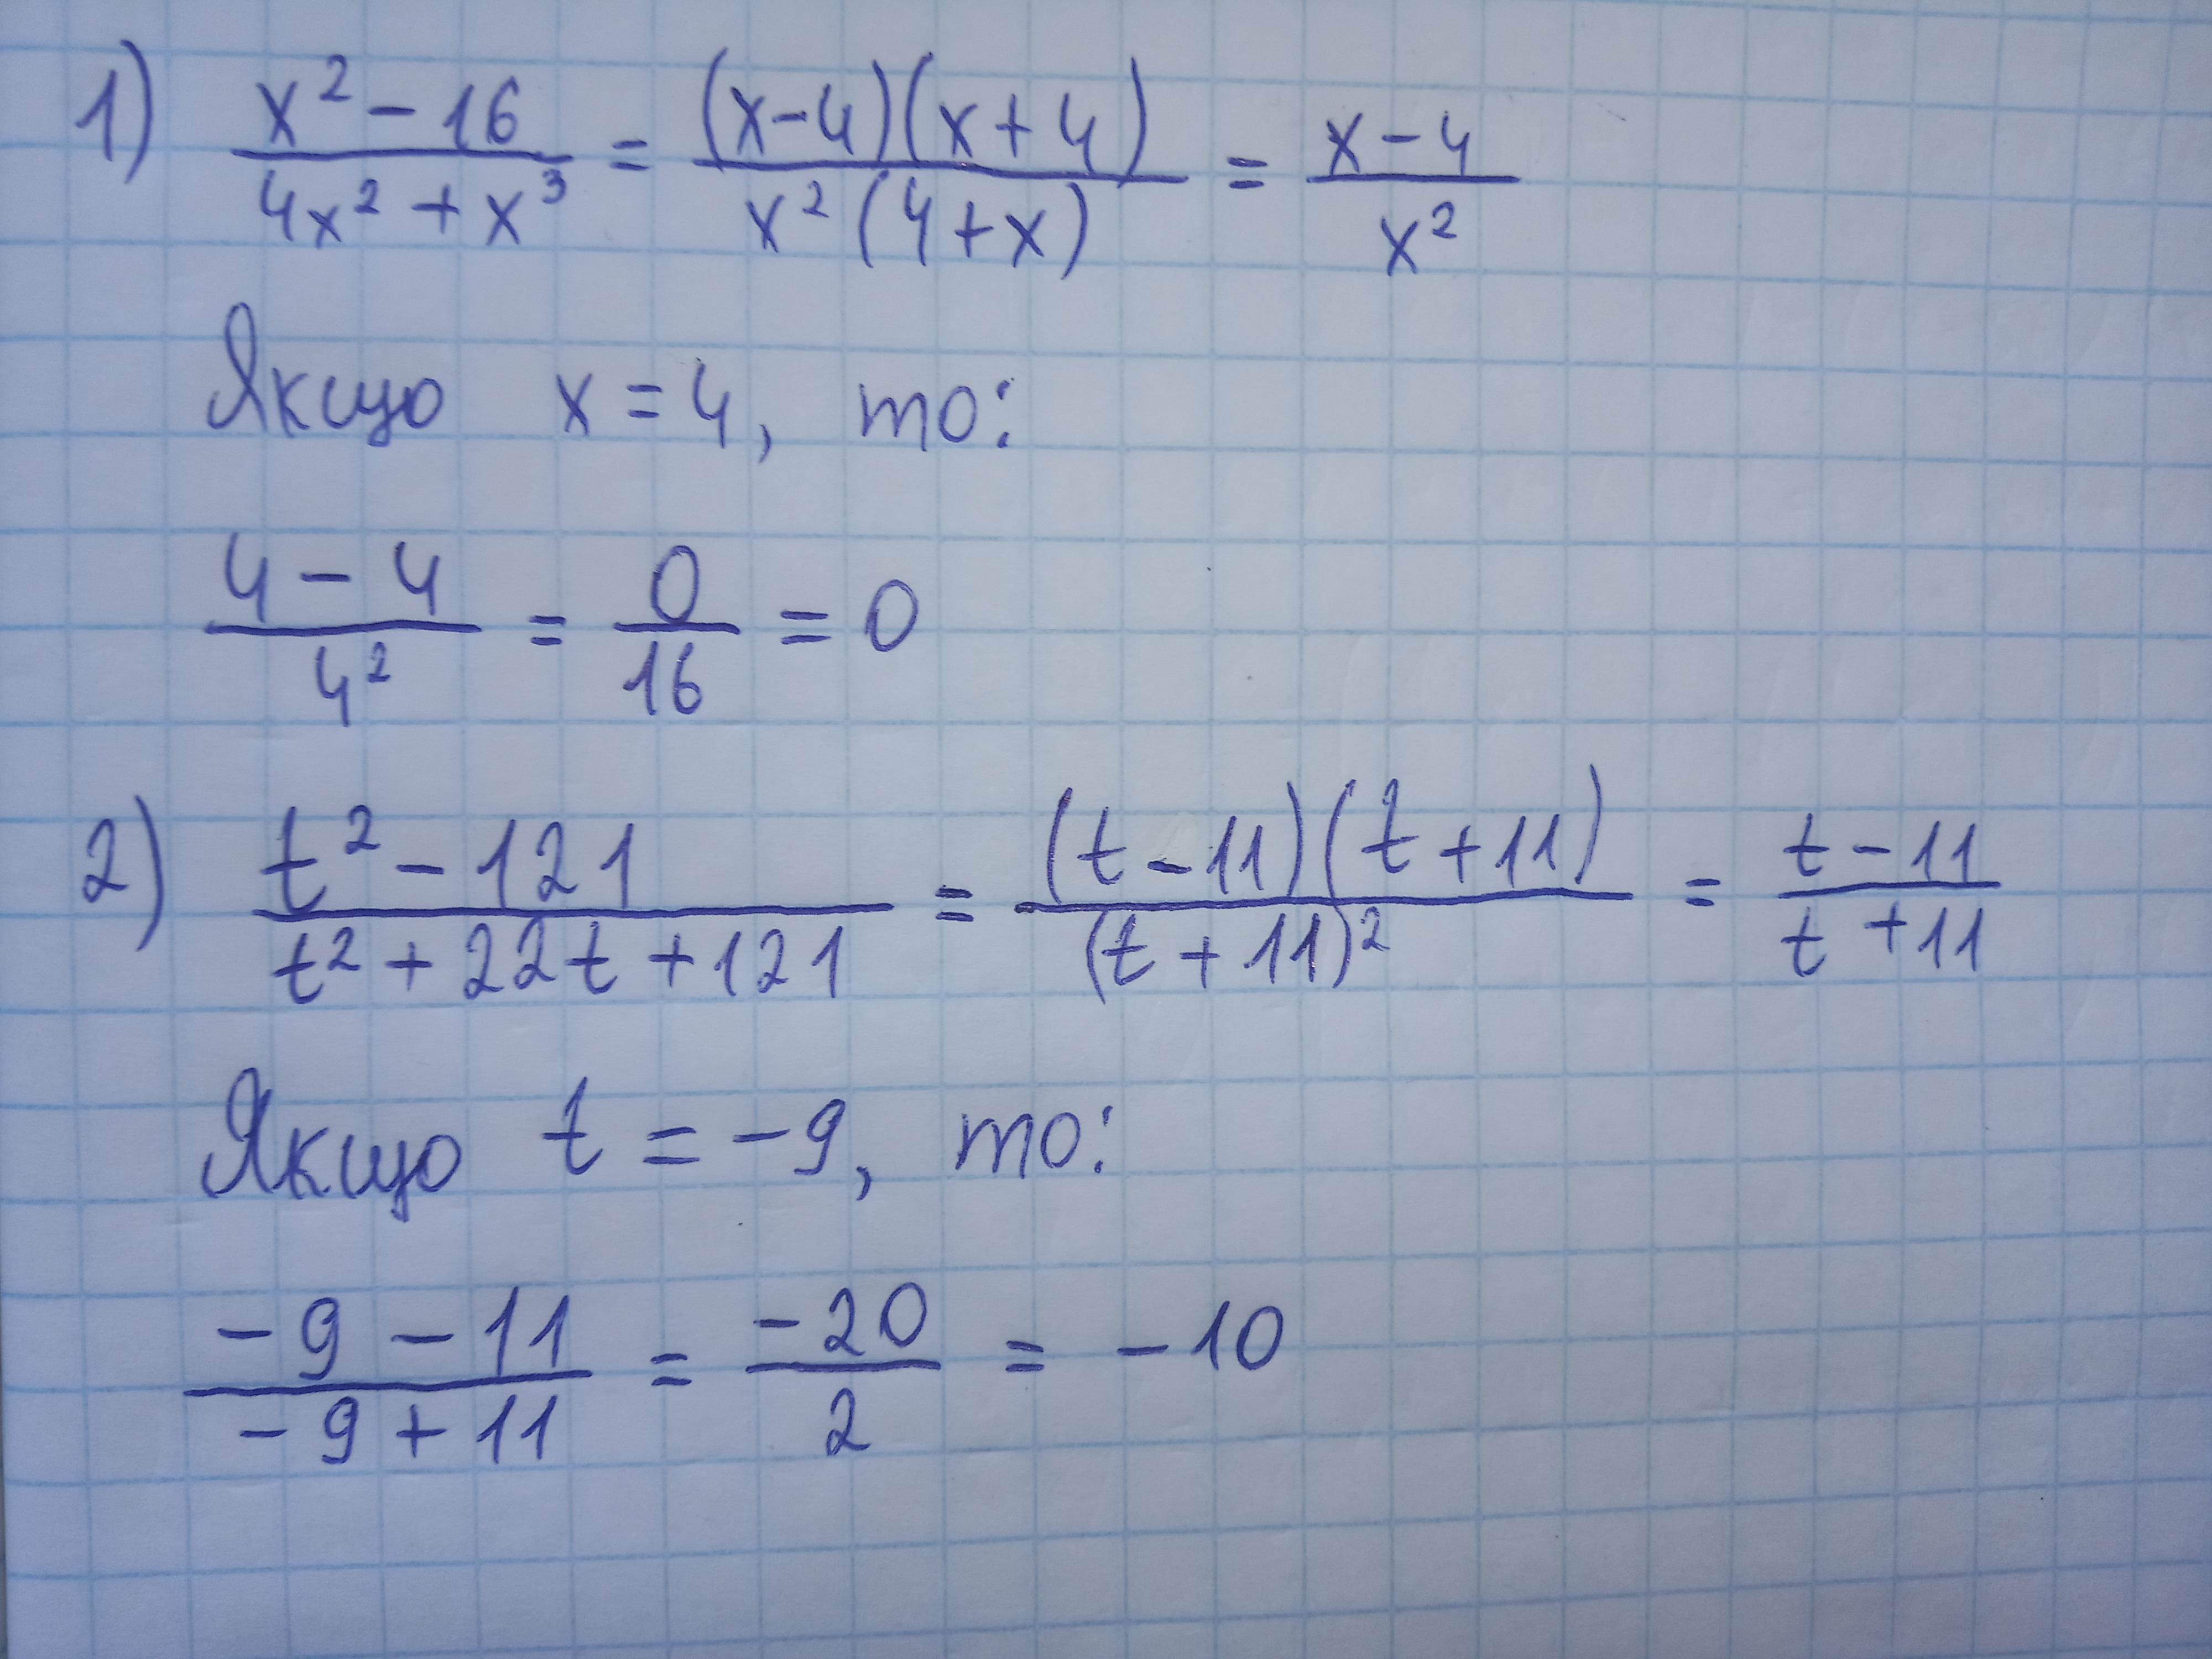 1) (x² - 16)/(4x² + x³) = ((x-4)(x+4))/(x²(4+x)) = (x-4)/x²
Якщо x = 4, то:
(4 - 4)/4² = 0/16 = 0
2) (t² - 121)/(t² + 22t + 121) = ((t - 11)(t + 11))/(t + 11)² = (t - 11)/(t + 11)
Якщо t = -9, то:
(-9 - 11)/(-9 + 11) = -20/2 = -10